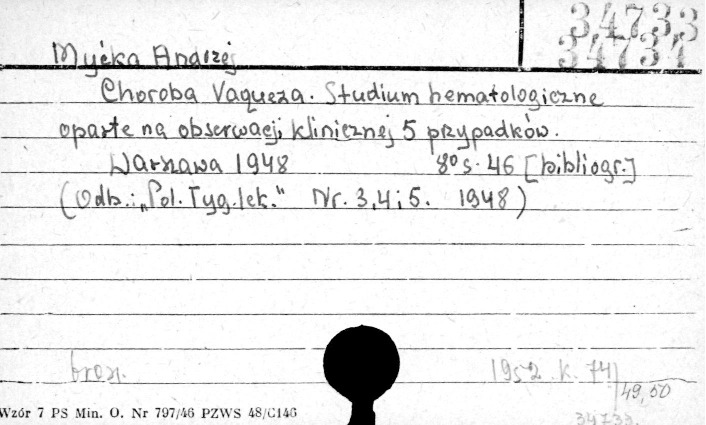 34733
34734
Myćka Andrzej
Choroba Vaqueza. Studium hematologiczne
oparte na obserwacji klinicznej 5 przypadków.
Warszawa 1948 8° s. 46 [bibliogr.]
(Odb.: „Pol. Tyg. lek." Nr. 3, 4 i 5. 1948)
brosz. 1952. k. 74
49,50
Wzór 7 PS Min. O. Nr 797/46 PZWS 48/C146
34733.